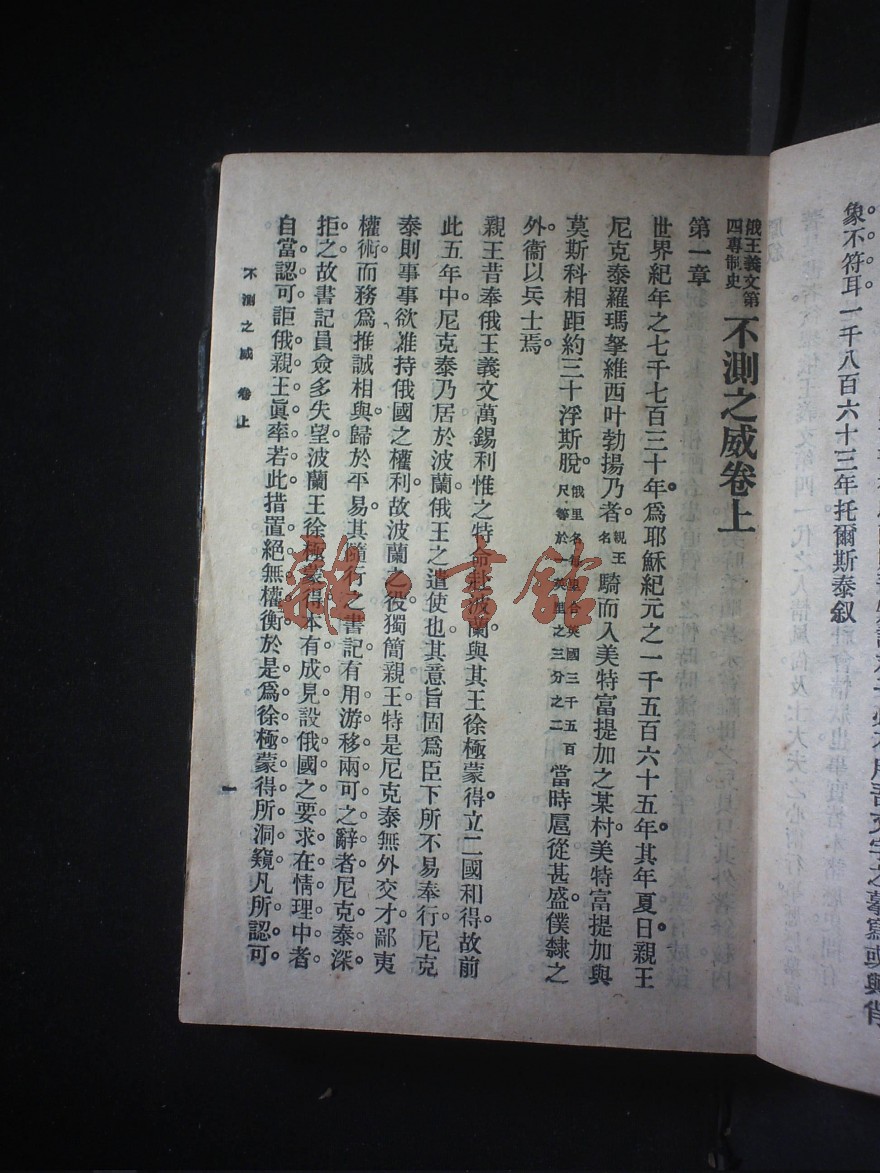 象不符耳一千八百六十三年托爾斯泰叙
俄王義文第四專制史
不測之威卷上
第一章
世界紀年之七千七百三十年。爲耶穌紀元之一千五百六十五年。其年夏日。親王
尼克泰羅瑪拏維西叶勃揚乃者親王名騎而入美特富提加之某村。美特富提加與
莫斯科相距約三十浮斯脫俄里名每里合英國三千五百尺等於一英里之三分之二當時扈從甚盛。僕隸之
外。衞以兵士焉。
親王昔奉俄王義文萬錫利惟之特命。赴波蘭。與其王徐極蒙得。立二國和得。故前
此五年中。尼克泰乃居於波蘭。俄王之遣使也。其意旨固爲臣下所不易奉行。尼克
泰則事事欲准持俄國之權利。故波蘭之役。獨簡親王。特是尼克泰無外交才。鄙夷
權術。而務爲推誠相與。歸於平易。其隨行之書記。有用游移兩可之辭者。尼克泰深
拒之。故書記員僉多失望。波蘭王徐極蒙得。本有成見。設俄國之要求在情理中者。
自當認可。詎俄親王眞率若此。措置絕無權衡。於是爲徐極蒙得所洞窺。凡所認可
不測之威 卷上
一
雜書館